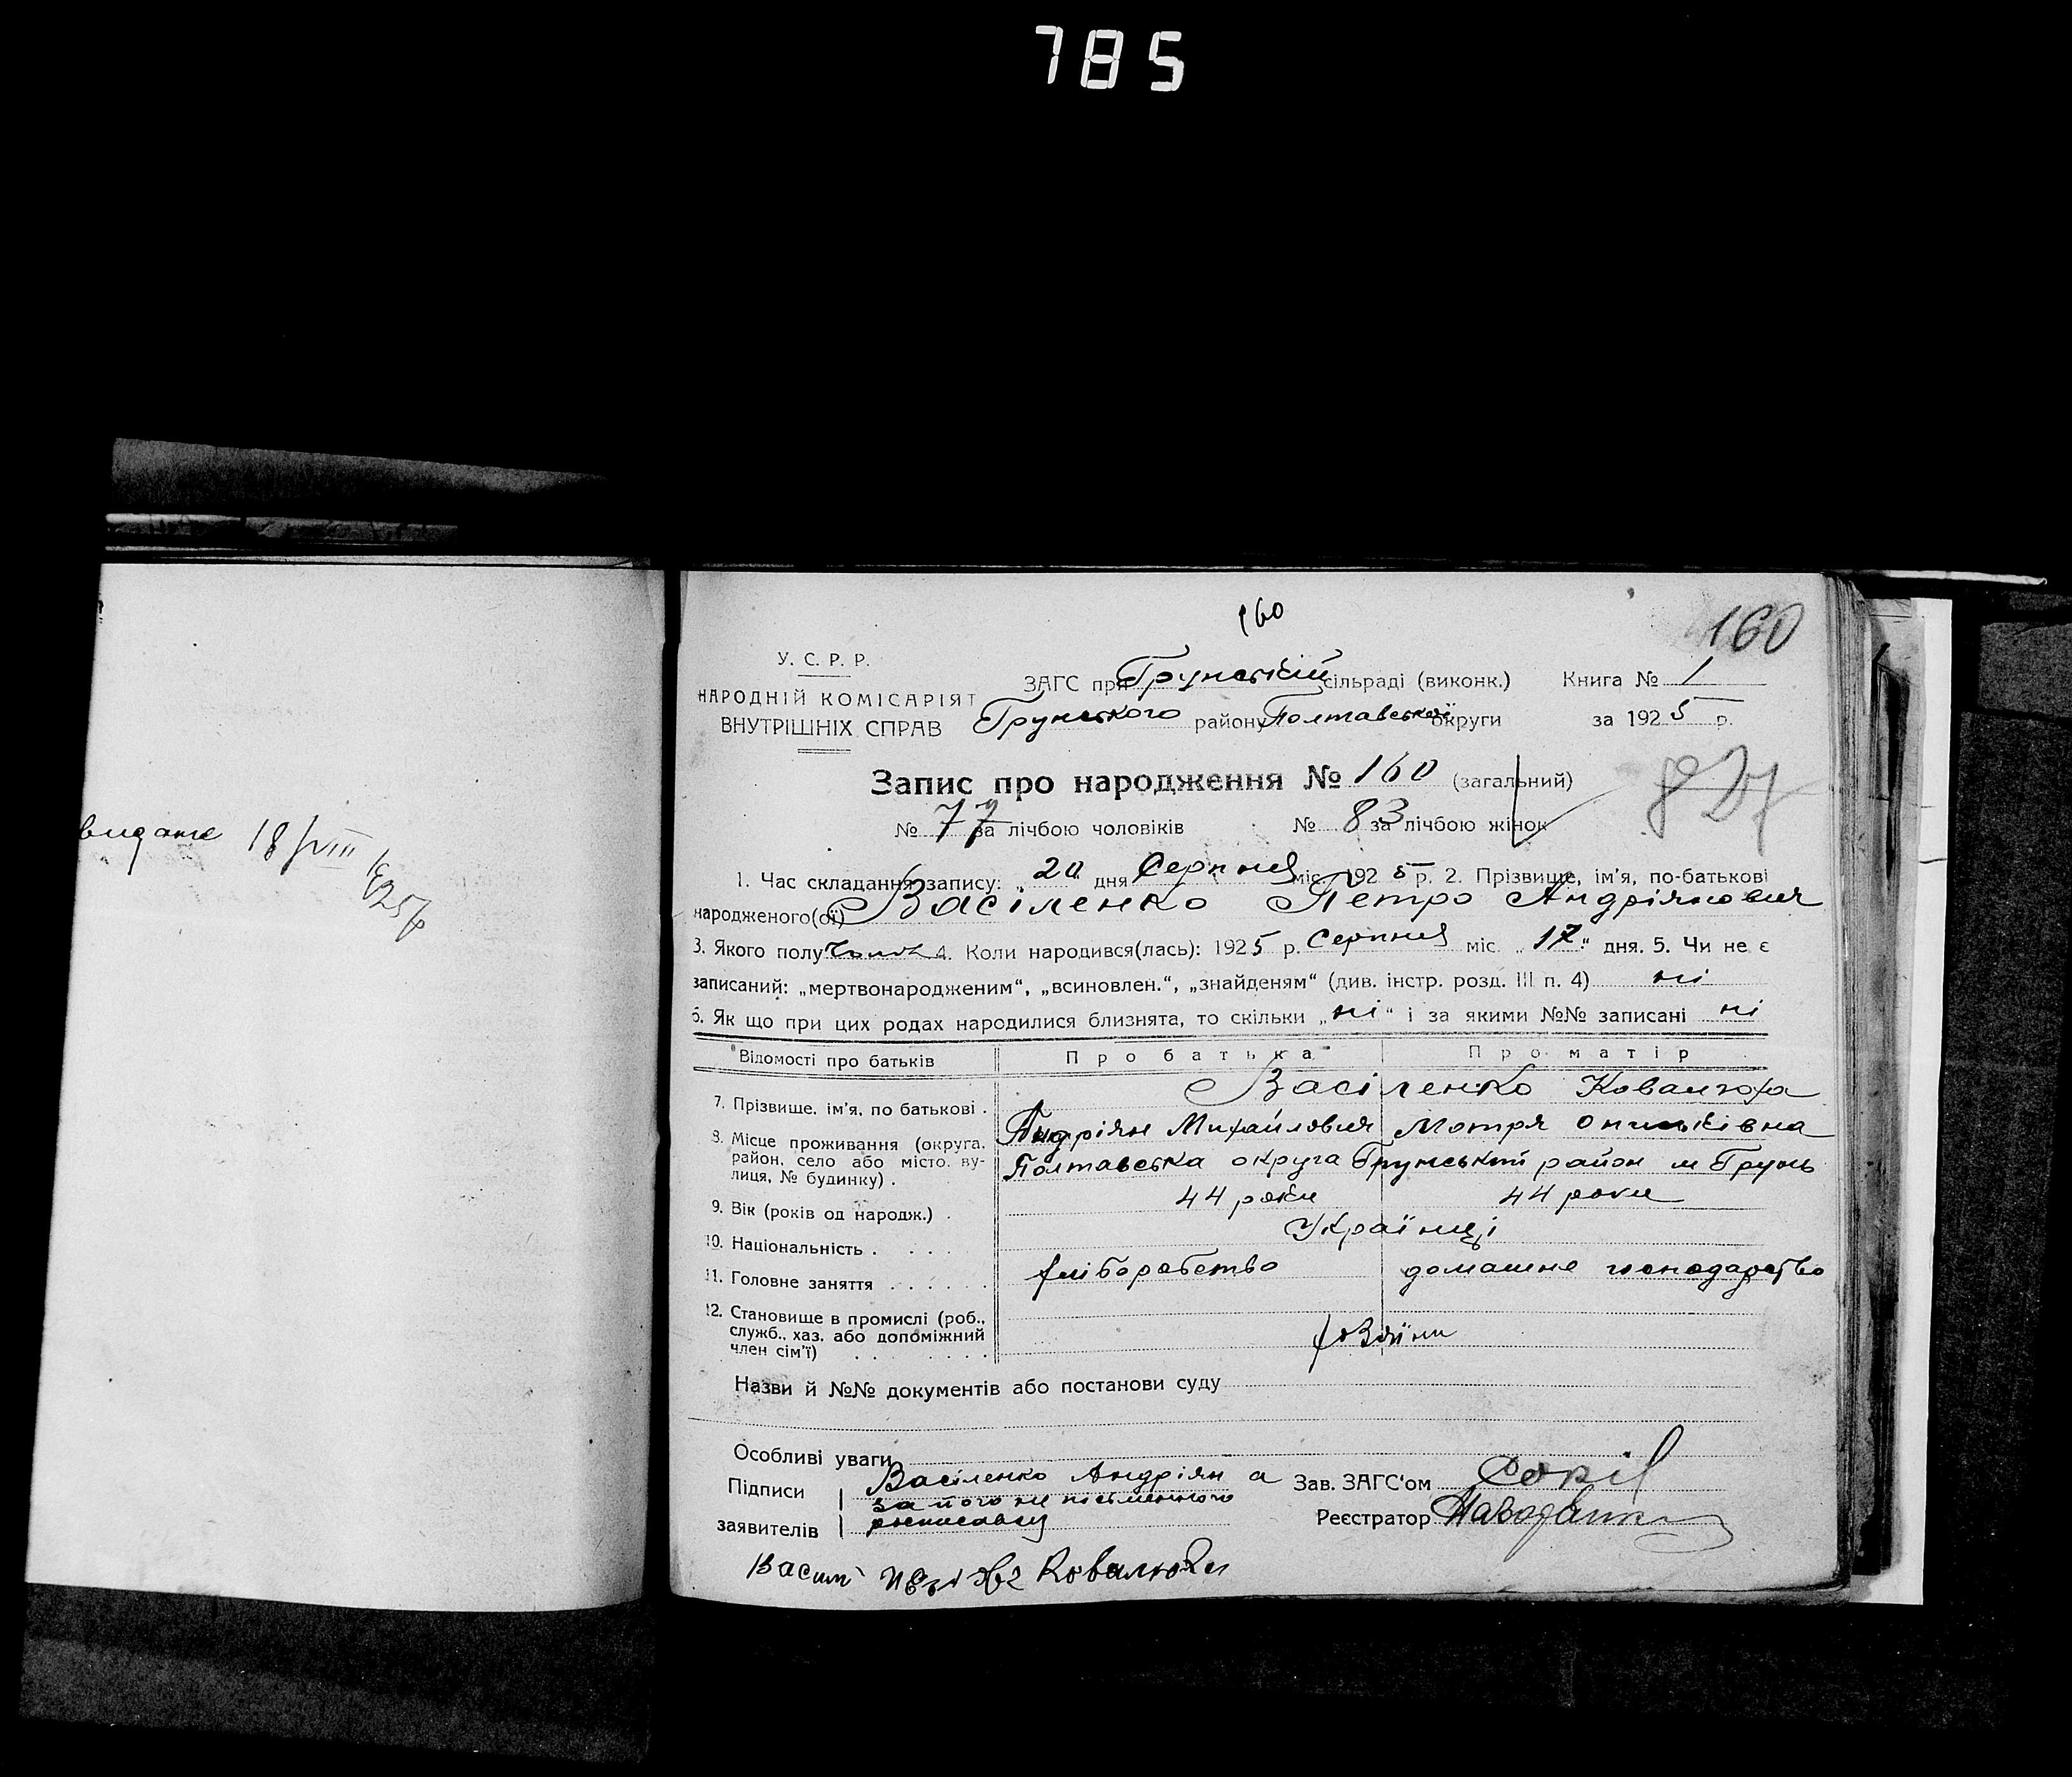 785
видане 18/VIII
160
160
У. С. Р. Р.
НАРОДНІЙ КОМІСАРІЯТ
ВНУТРІШНІХ СПРАВ
ЗАГС при Грунській сільраді (виконк.)
Грунського району Полтавської округи
Книга № 1
за 1925 р.
Запис про народження № 160 (загальний)
№ 77 за лічбою чоловіків № 83 за лічбою жінок
1. Час складання запису: „20" дня Серпня міс. 1925 р. 2. Прізвище, ім'я, по-батькові
народженого(ої) Василенко Петро Андріянович
3. Якого полу чолов 4. Коли народився(лась): 1925 р. Серпня міс. „17" дня. 5. Чи не є
записаний: „мертвонародженим", „всиновлен.", „знайденям" (див. інстр. розд. III п. 4) ні
6. Як що при цих родах народилися близнята, то скільки „ні" і за якими №№ записані ні
Відомості про батьків Про батька Про матір
7. Прізвище, ім'я, по батькові . Васіленко Ковалюха
Андріян Михайлович Мотря
8. Місце проживання (округа, район, село або місто, вулиця, № будинку) . Полтавська округа Грунський район м Грунь
9. Вік (років од народж.) . 44 роки 44 роки
10. Національність . . . . Українці
11. Головне заняття . . . . . . хліборобство домашнє господарство
12. Становище в промислі (роб., служб., хаз. або допоміжний член сім'ї) . . . . . . хозяїни
Назви й №№ документів або постанови суду
Особливі уваги
Підписи
заявителів
Васіленко Андріян а
за його не письменного
росписався
Зав. ЗАГС'ом
Реєстратор